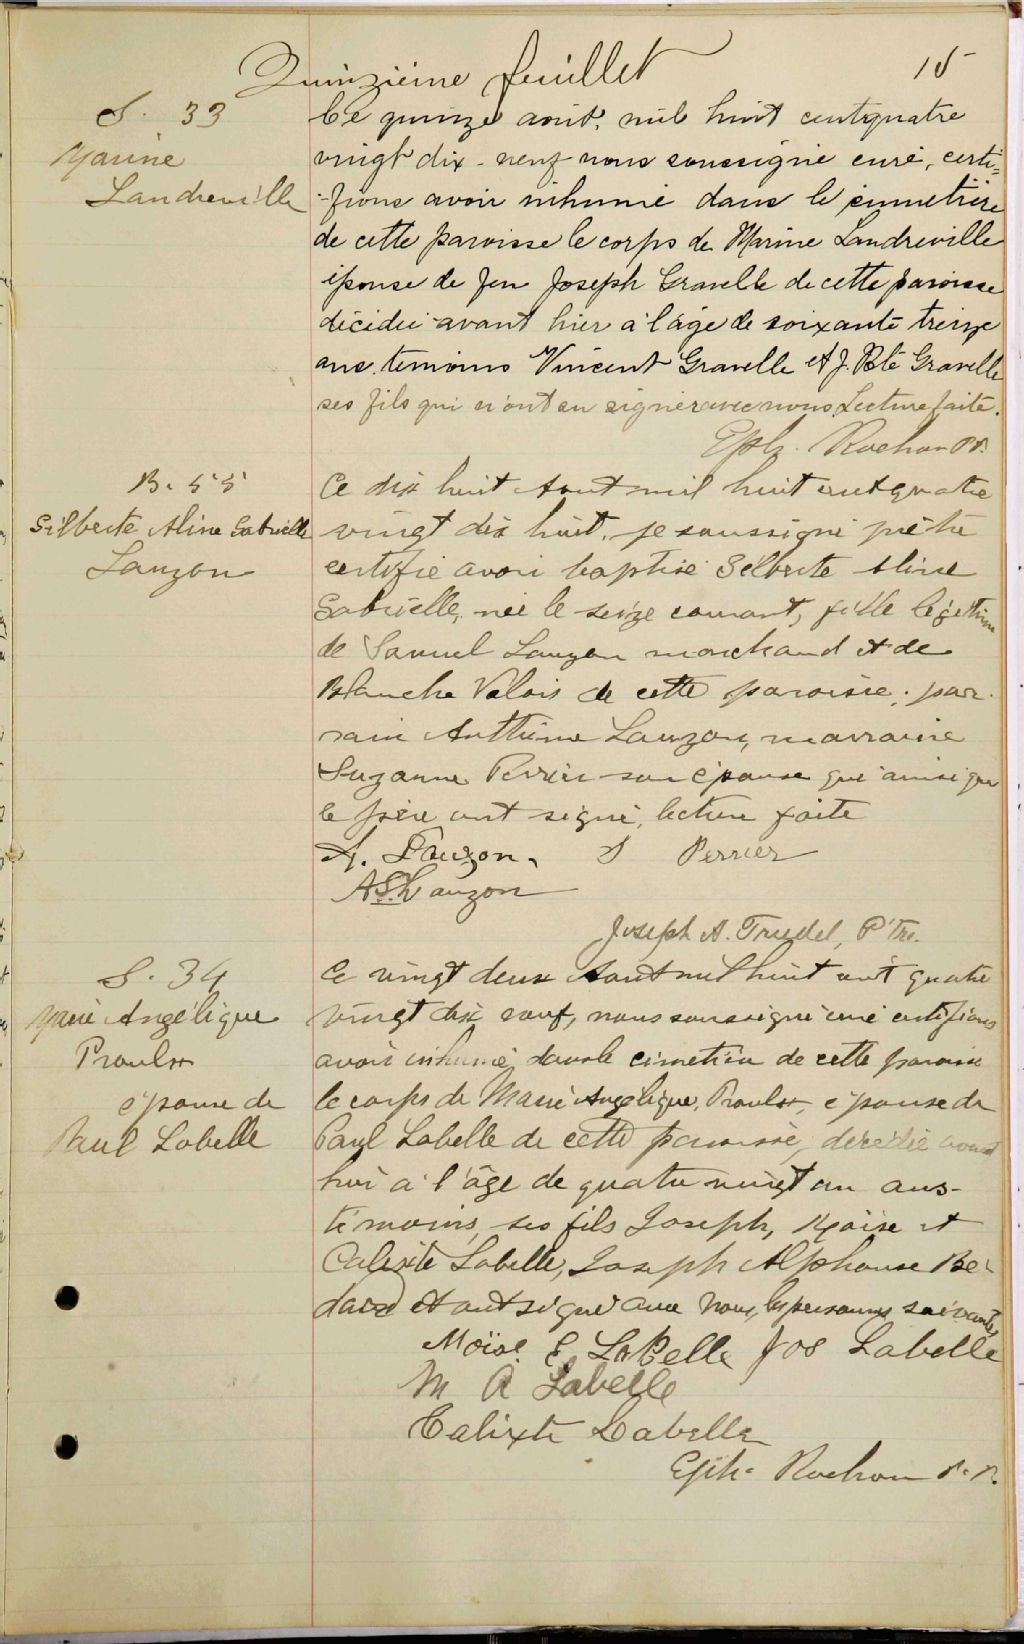 Quinzième feuillet 15
S. 33
Marine
Landreville
Ce quinze août, mil huit cent quatre
vingt dix-neuf nous soussigné curé, certi=
-fions avoir inhumé dans le cimetière
de cette paroisse le corps de Marine Landreville
épouse de feu Joseph Gravelle de cette paroisse
décédée avant hier à l'âge de soixante treize
ans. témoins Vincent Gravelle et J. Bte Gravelle
ses fils qui n'ont su signer avec nous. Lecture faite.
Eph. Rochon
B. 55
Gilberte Aline Gabrielle
Lauzon
Ce dix huit Aout mil huit cent quatre
vingt dix huit, je soussigné prêtre
certifie avoir baptisé Gilberte Aline
Gabrielle, née le seize courant, fille légitime
de Samuel Lauzon marchand et de
Blanche Valois de cette paroisse; par-
rain Anthime Lauzon, marraine
Suzanne Perrier son épouse qui ainsi que
le père ont signé, lecture faite
A. Lauzon. S Perrier
A S Lauzon
Joseph A. Trudel, Ptre.
S. 34
Marie Angélique
Proulx
épouse de
Paul Labelle
Ce vingt deux Aout mil huit cent quatre
vingt dix neuf, nous soussigné curé certifions
avoir inhumé dans le cimetière de cette paroisse
le corps de Marie Angélique, Proulx, épouse de
Paul Labelle de cette paroisse, décédée avant
hier à l'âge de quatre vingt un ans-
témoins, ses fils Joseph, Moïse et
Calixte Labelle, Joseph Alphonse Bé-
dard et ont signé avec nous, les personnes suivantes
Moïse E LaBelle Jos Labelle
M A Labelle
Calixte Labelle
Eph. Rochon P. P.